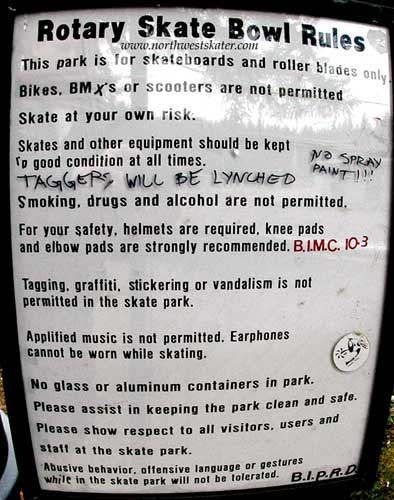 Rotary Skate Bowl Rules
www.northwestskater.com
This park is for skateboards and roller blades only.
Bikes, BMX's or scooters are not permitted
Skate at your own risk.
Skates and other equipment should be kept
in good condition at all times.
NO SPRAY
PAINT!!!
TAGGERS WILL BE LYNCHED
Smoking, drugs and alcohol are not permitted.
For your safety, helmets are required, knee pads
and elbow pads are strongly recommended. B.I.M.C. 10-3
Tagging, graffiti, stickering or vandalism is not
permitted in the skate park.
Applified music is not permitted. Earphones
cannot be worn while skating.
No glass or aluminum containers in park.
Please assist in keeping the park clean and safe.
Please show respect to all visitors, users and
staff at the skate park.
Abusive behavior, offensive language or gestures
while in the skate park will not be tolerated. B.I.P.R.D.